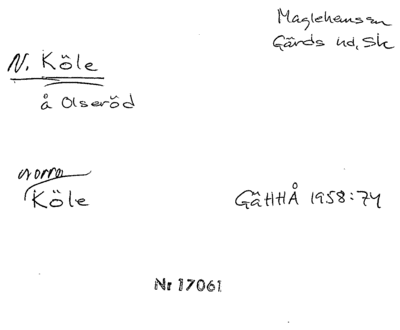 Maglehems sn
Gärds hd, Sk
N. Köle
å Olseröd
norra
Köle
GäHHÅ 1958:74
Nr 17061